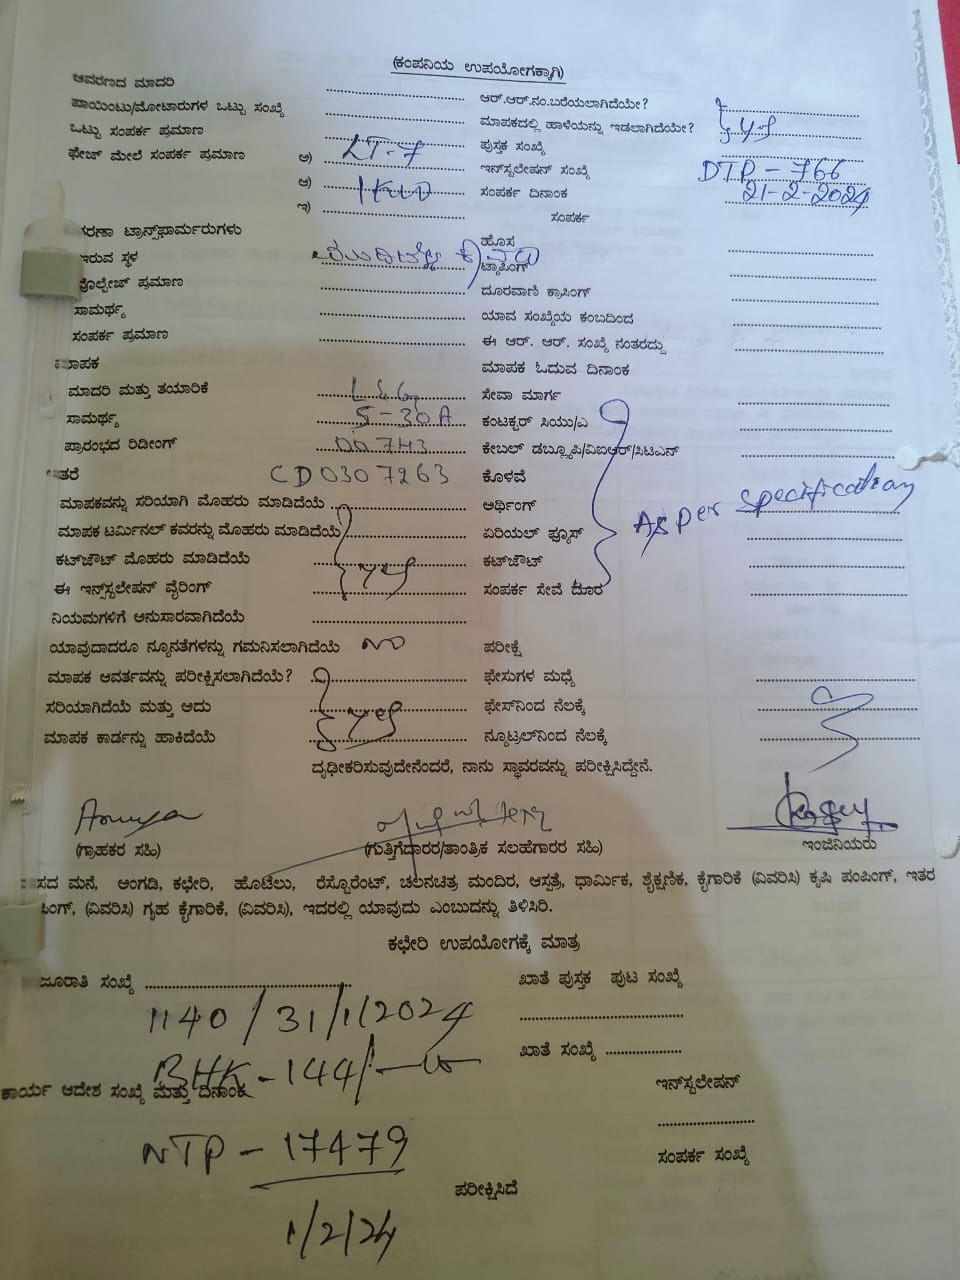 (ಕಂಪನಿಯ ಉಪಯೋಗಕ್ಕಾಗಿ)
ಆವರಣದ ಮಾದರಿ
ಆರ್.ಆರ್.ನಂ.ಬರೆಯಲಾಗಿದೆಯೇ?
ಪಾಯಿಂಟು/ಮೋಟಾರುಗಳ ಒಟ್ಟು ಸಂಖ್ಯೆ
ಮಾಪಕದಲ್ಲಿ ಹಾಳೆಯನ್ನು ಇಡಲಾಗಿದೆಯೇ? yes
ಒಟ್ಟು ಸಂಪರ್ಕ ಪ್ರಮಾಣ
ಪುಸ್ತಕ ಸಂಖ್ಯೆ
ಫೇಜ್ ಮೇಲೆ ಸಂಪರ್ಕ ಪ್ರಮಾಣ ಅ) LT-7
ಇನ್‌ಸ್ಟಲೇಷನ್ ಸಂಖ್ಯೆ DTP - 766
ಆ) 1KW
ಸಂಪರ್ಕ ದಿನಾಂಕ 21-2-2024
ಇ)
ಸಂಪರ್ಕ
ಕರಣಾ ಟ್ರಾನ್ಸ್‌ಫಾರ್ಮರುಗಳು
ಹೊಸ
ಇರುವ ಸ್ಥಳ
ಟ್ಯಾಪಿಂಗ್
ವೋಲ್ಟೇಜ್ ಪ್ರಮಾಣ
ದೂರವಾಣಿ ಕ್ರಾಸಿಂಗ್
ಸಾಮರ್ಥ್ಯ
ಯಾವ ಸಂಖ್ಯೆಯ ಕಂಬದಿಂದ
ಸಂಪರ್ಕ ಪ್ರಮಾಣ
ಈ ಆರ್. ಆರ್. ಸಂಖ್ಯೆ ನಂತರದ್ದು
ಮಾಪಕ
ಮಾಪಕ ಓದುವ ದಿನಾಂಕ
ಮಾದರಿ ಮತ್ತು ತಯಾರಿಕೆ L&G
ಸೇವಾ ಮಾರ್ಗ
ಸಾಮರ್ಥ್ಯ 5-30A
ಕಂಟಕ್ಟರ್ ಸಿಯು/ಎ
ಪ್ರಾರಂಭದ ರಿಡೀಂಗ್ 00743
ಕೇಬಲ್ ಡಬ್ಲ್ಯೂಪಿ/ವಿಐಆರ್/ಸಿಟಿಎನ್
ಇತರೆ CD0307263
ಕೊಳವೆ
ಮಾಪಕವನ್ನು ಸರಿಯಾಗಿ ಮೊಹರು ಮಾಡಿದೆಯೆ
ಅರ್ಥಿಂಗ್ As per specification
ಮಾಪಕ ಟರ್ಮಿನಲ್ ಕವರನ್ನು ಮೊಹರು ಮಾಡಿದೆಯೆ
ಏರಿಯಲ್ ಫ್ಯೂಸ್
ಕಟ್‌ಜೌಟ್ ಮೊಹರು ಮಾಡಿದೆಯೆ yes
ಕಟ್‌ಜೌಟ್
ಈ ಇನ್ಸ್‌ಸ್ಟಲೇಷನ್ ವೈರಿಂಗ್
ಸಂಪರ್ಕ ಸೇವೆ ದೂರ
ನಿಯಮಗಳಿಗೆ ಅನುಸಾರವಾಗಿದೆಯೆ
ಯಾವುದಾದರೂ ನ್ಯೂನತೆಗಳನ್ನು ಗಮನಿಸಲಾಗಿದೆಯೆ no
ಪರೀಕ್ಷೆ
ಮಾಪಕ ಆವರ್ತವನ್ನು ಪರೀಕ್ಷಿಸಲಾಗಿದೆಯೆ?
ಫೇಸುಗಳ ಮಧ್ಯೆ
ಸರಿಯಾಗಿದೆಯೆ ಮತ್ತು ಅದು yes
ಫೇಸ್‌ನಿಂದ ನೆಲಕ್ಕೆ
ಮಾಪಕ ಕಾರ್ಡನ್ನು ಹಾಕಿದೆಯೆ
ನ್ಯೂಟ್ರಲ್‌ನಿಂದ ನೆಲಕ್ಕೆ
ದೃಢೀಕರಿಸುವುದೇನೆಂದರೆ, ನಾನು ಸ್ಥಾವರವನ್ನು ಪರೀಕ್ಷಿಸಿದ್ದೇನೆ.
(ಗ್ರಾಹಕರ ಸಹಿ)
(ಗುತ್ತಿಗೆದಾರರ/ತಾಂತ್ರಿಕ ಸಲಹೆಗಾರರ ಸಹಿ)
ಇಂಜಿನಿಯರು
ಸದ ಮನೆ, ಅಂಗಡಿ, ಕಛೇರಿ, ಹೊಟೆಲು, ರೆಸ್ಟೊರೆಂಟ್, ಚಲನಚಿತ್ರ ಮಂದಿರ, ಆಸ್ಪತ್ರೆ, ಧಾರ್ಮಿಕ, ಶೈಕ್ಷಣಿಕ, ಕೈಗಾರಿಕೆ (ವಿವರಿಸಿ) ಕೃಷಿ ಪಂಪಿಂಗ್, ಇತರ
ಪಿಂಗ್, (ವಿವರಿಸಿ) ಗೃಹ ಕೈಗಾರಿಕೆ, (ವಿವರಿಸಿ), ಇದರಲ್ಲಿ ಯಾವುದು ಎಂಬುದನ್ನು ತಿಳಿಸಿರಿ.
ಕಛೇರಿ ಉಪಯೋಗಕ್ಕೆ ಮಾತ್ರ
ಜೂರಾತಿ ಸಂಖ್ಯೆ
ಖಾತೆ ಪುಸ್ತಕ ಪುಟ ಸಂಖ್ಯೆ
1140/31/1/2024
ಖಾತೆ ಸಂಖ್ಯೆ
BHK-144/-
ಕಾರ್ಯ ಆದೇಶ ಸಂಖ್ಯೆ ಮತ್ತು ದಿನಾಂಕ
ಇನ್‌ಸ್ಟಲೇಷನ್
NTP - 17479
ಸಂಪರ್ಕ ಸಂಖ್ಯೆ
ಪರೀಕ್ಷಿಸಿದೆ
1/2/24